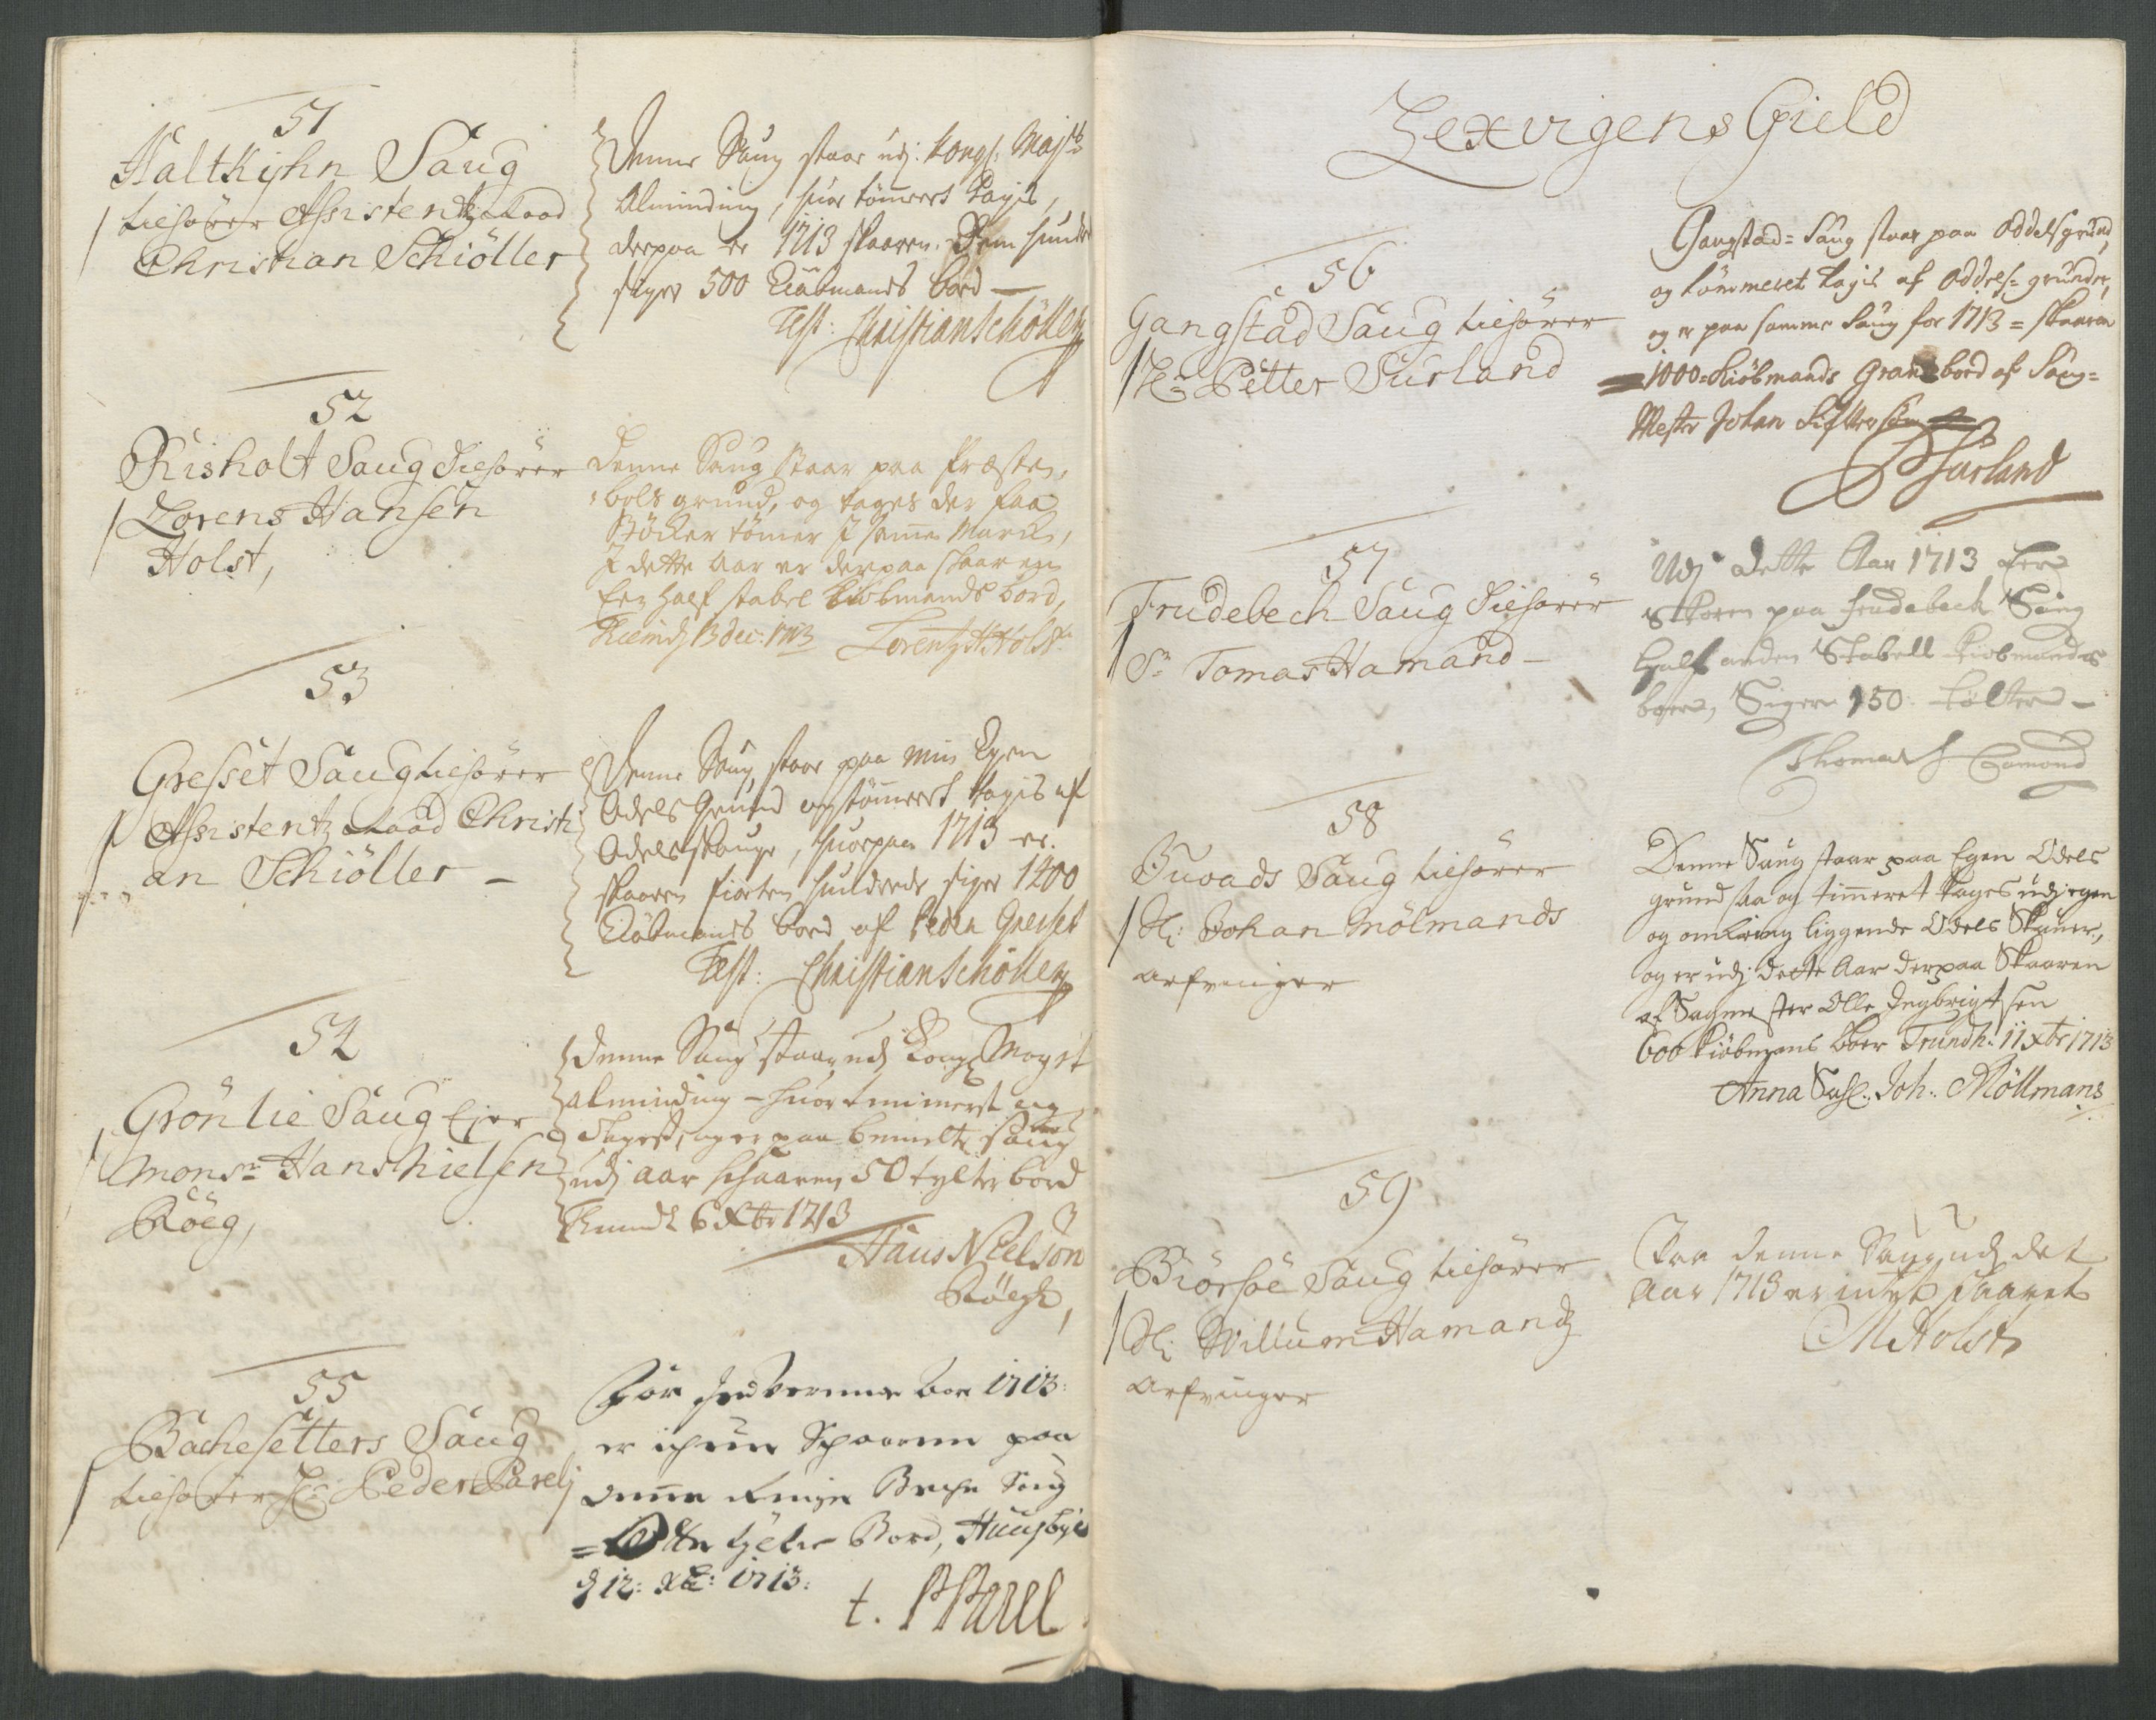 51
Haltkijhn Saug
tilhörer Assistentz Raad
Christian Schiöller
Denne Saug staar udj Kongl: Mayts
Alminding, huor tömmert tagis,
derpaa er 1713 skaaren. Fem hundr
siger 500 Kiöbmands bord —
Test: Christian Schöller
52
Risholt Saug Tilhörer
Lorens Hansen
Holst,
Denne Saug Staar paa Præste-
bols grund, og tages der faa
Stöcker tömer J samme March,
J dette Aar er derpaa skaaren
Een half stabel Kiöbmands bord,
13 Dec: 1713 Lorentz H Holst
53
Gresset Saug tilhörer
Assistentz Raad Christi
an Schiöller —
Denne Saug staar paa min Egen
Odels Grund og tömmert tagis af
Odels skouge, huorpaa 1713 er
skaaren fiorten hundrede siger 1400
Kiöbmands bord af Peder Gresset
Test: Christian Schöller
54
Grönlie Saug Ejer
Monsr Hans Nielsen
Röeg,
Denne Saug staar udj Kongl Mayst
alminding - huor temmerst og
tages, og er paa bemelte saug
udj aar schaaren 50 tylter bord
6 Xbr 1713
Hans Nielsön
Röegh,
55
Bachesetters Saug
tilhörer Hr Peder Parelj
For indeverende Aar 1713:
er ichun Schaaren paa
denne ringe Beche Saug
= Otte tylter Bord, Huusbye
d 12: Xbr: 1713:
t. PParel
Lexvigens Gield
56
Gangstad Saug tilhörer
Hr Petter Surland
Gangstad = Saug staar paa Oddelsgrund,
og tömmeret tagis af Oddels = grunder,
og er paa samme Saug for 1713 = skaaren
1000 = Kiöbmands Gran bord af Saug =
Mester Johan
PSurland
57
Frudebech Saug Tilhörer
Sr Tomas Hamand —
Udj dette Aar 1713 Er
Skoren paa frudebech Saug
Half anden Stabell Kiöbmands
boer, Siger 150 tölter —
Thomas Hamond
58
Buvads Saug tilhörer
Sl: Johan Mölmands
arfvinger
Denne Saug staar paa Egen Odels
grund saa og timmeret tages udj egen
og omkring liggende Odels Skauer,
og er udj dette Aar derpaa Skaaren
af Saugmester Olle Ingbrigtsen
600 Kiöbmans boer Trundh: 11 Xbr 1713
Anna Sahl: Joh: Möllmans
59
Biörsöe Saug tilhörer
Sl: Willum Hamandz
arfvinger
Paa denne Saug udj det
Aar 1713 er intet skaaret
M Holst